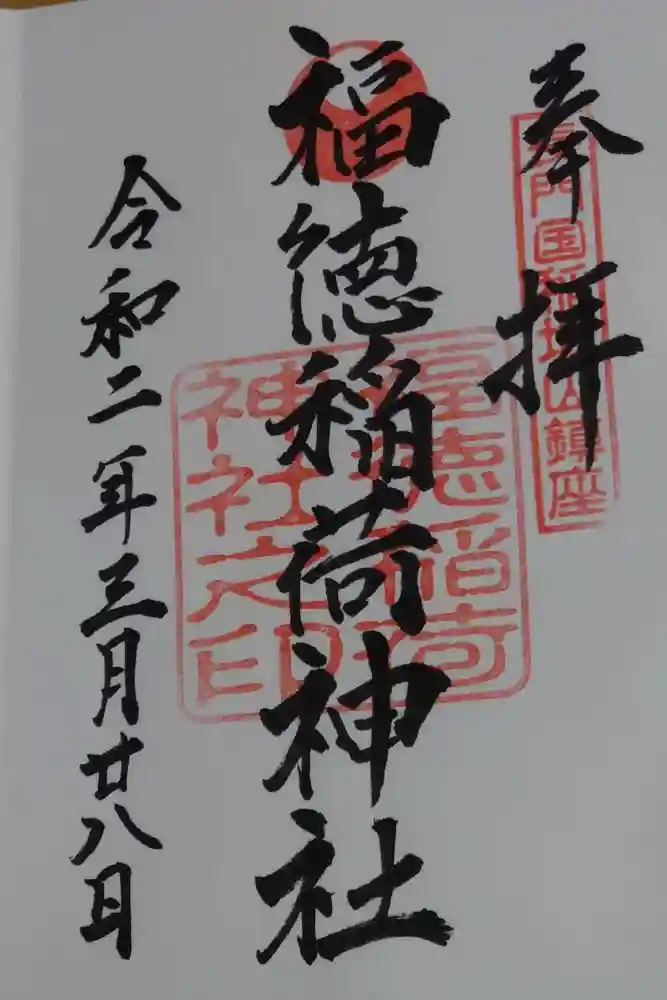 奉拝
長門国稲 山鎮座
福徳稲荷神社
福徳稲荷
神社之印
令和二年三月廿八日